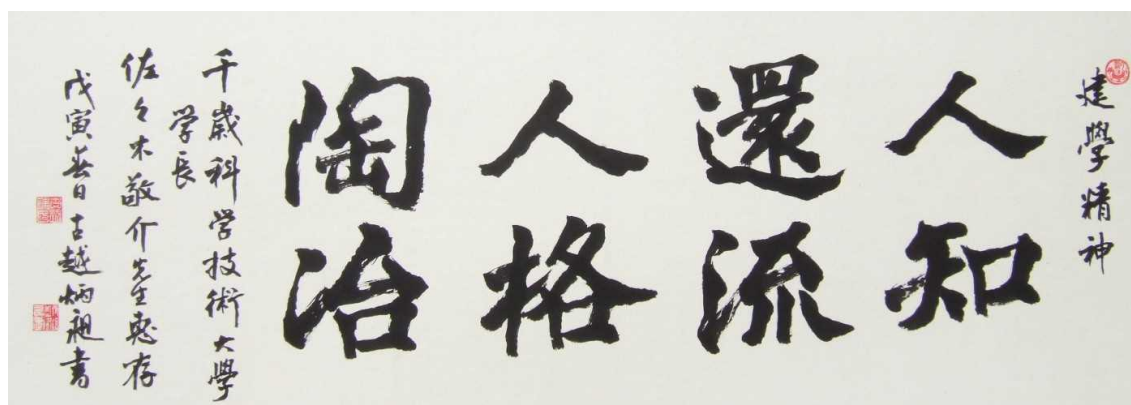 建學精神
人知
還流
人格
陶冶
千歳科学技術大學
学長
佐々木敬介先生惠存
戊寅春日古越炳祖書